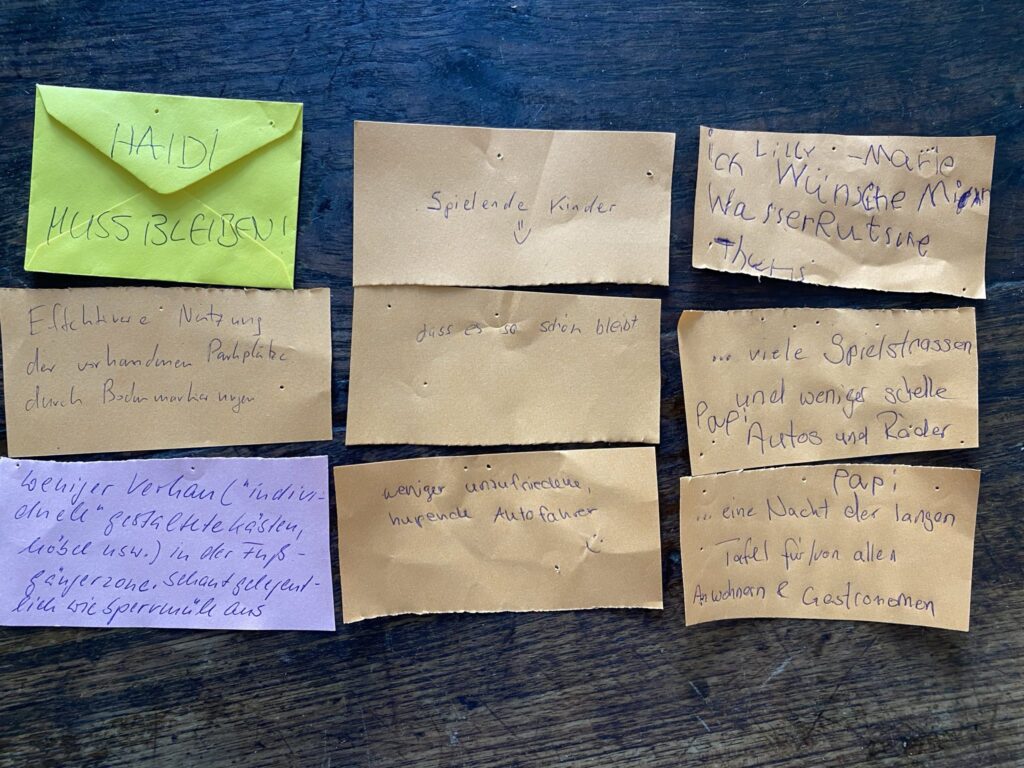 HAIDI
MUSS BLEIBEN!
Spielende Kinder
Lilly-Marie
ich Wünsche Mir
WasserRutsche
Effektivere Nutzung
der vorhandenen Parkplätze
durch Bodenmarkierungen
dass es so schön bleibt
... viele Spielstrassen
und weniger schelle
Papi Autos und Räder
weniger Verhau ("indivi-
duell" gestaltete Kästen,
Möbel usw.) in der Fuß-
gängerzone. Schaut gelegent-
lich wie Sperrmüll aus
weniger unzufriedene,
hupende Autofahrer
Papi
... eine Nacht der langen
Tafel für/von allen
Anwohnern & Gastronomen